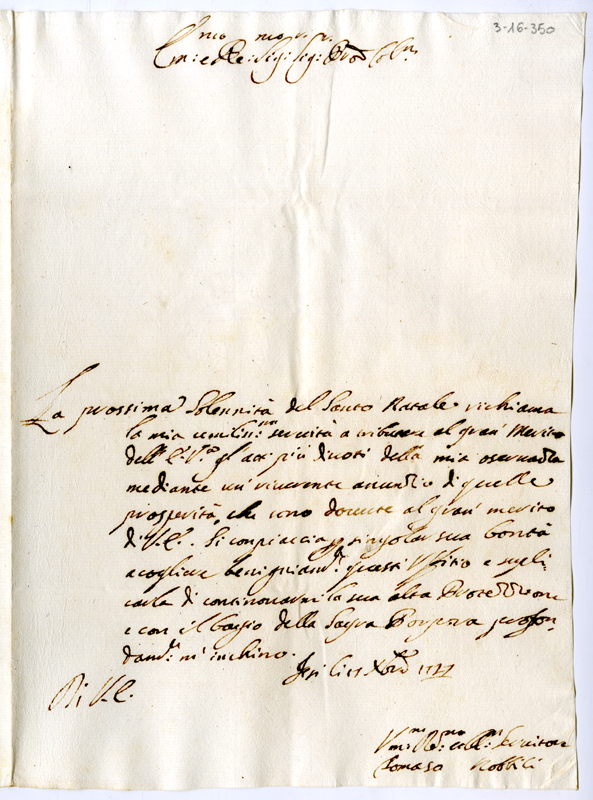 3-16-350
Em:mo e Re:mo Sig: Sig: Pron Col:mo
La prossima Solennità del Santo Natale richiama
la mia umiliss:ma servità a tributare al gran Merito
dell' E. V.ra gl'atti più divoti della mia
mediante un riverente anuncio di quelle
prosperità, che sono dovute al gran merito
di V. E. Si conpiaccia p singolar sua bontà
acogliere benigniam.te questi Uffitio e supli-
carla di continovarmi la sua alta Protettione
e con il bagio della Sagra Porpora profon-
dam.te m'inchino.
Jesi li
Di V. E.
Um:mo Dev:mo et Obl:mo Servitore
Tomaso Nobbili